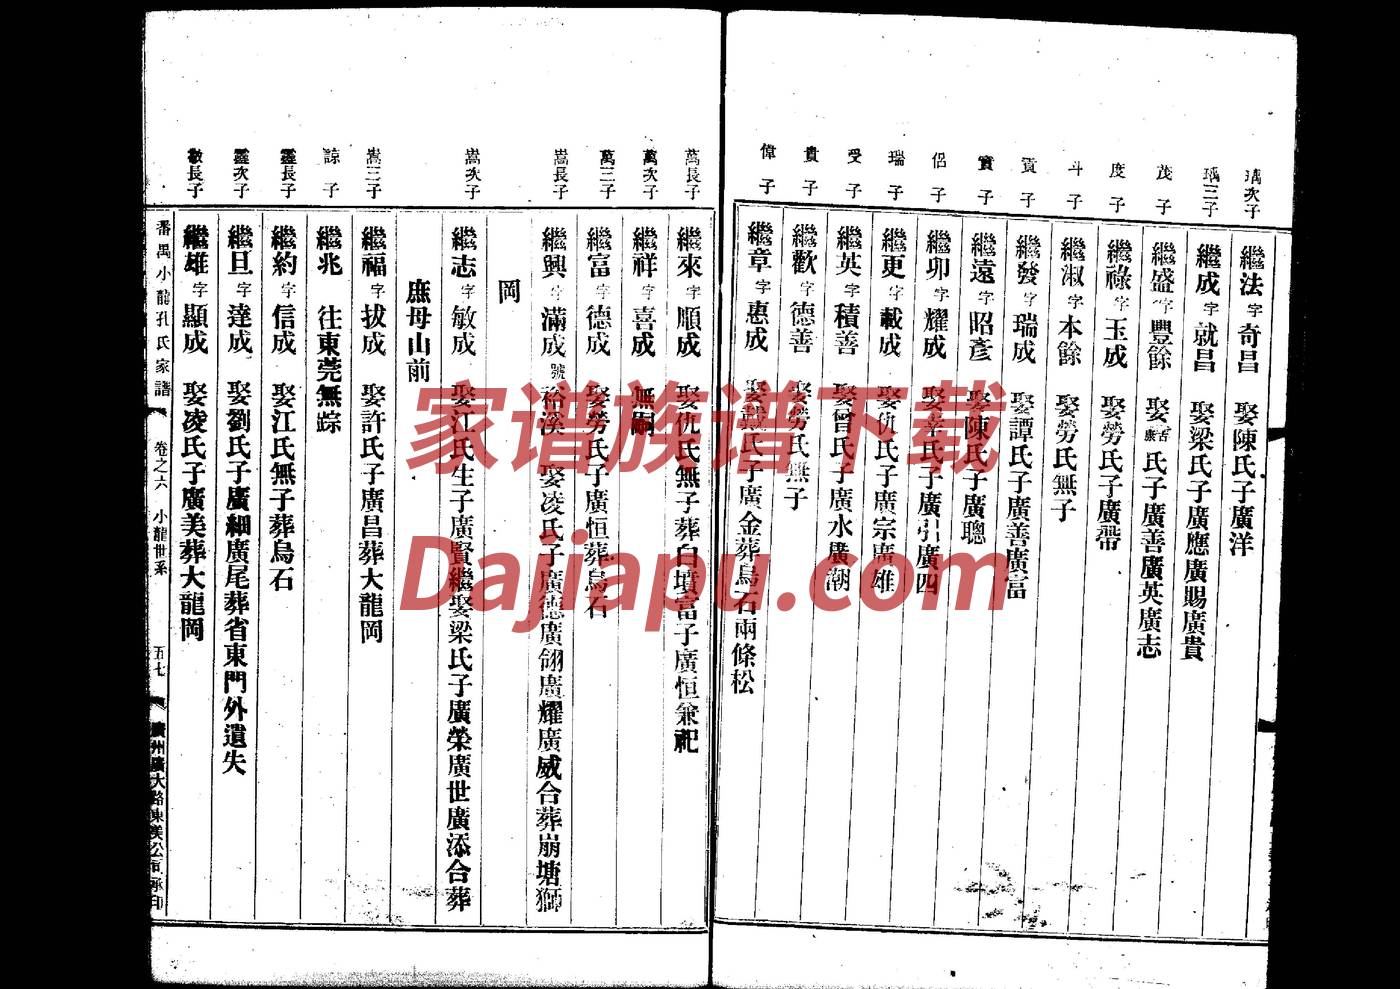 瑀次子
繼法 字 奇昌 娶陳氏子廣洋
瑀三子
繼成 字 就昌 娶梁氏子廣應廣賜廣貴
茂 子
繼盛 字 豐餘 娶 氏子廣善廣英廣志
度 子
繼祿 字 玉成 娶勞氏子廣帶
斗 子
繼淑 字 本餘 娶勞氏無子
貢 子
繼發 字 瑞成 娶譚氏子廣善廣富
實 子
繼遠 字 昭彥 娶陳氏子廣聰
侶 子
繼卯 字 耀成 娶辛氏子廣引廣四
瑞 子
繼更 字 載成 娶仇氏子廣宗廣雄
受 子
繼英 字 積善 娶曾氏子廣水廣潮
貴 子
繼歡 字 德善 娶勞氏無子
偉 子
繼章 字 惠成 娶戴氏子廣金葬烏石兩條松
萬長子
繼來 字 順成 娶仇氏無子葬白墳富子廣恒兼祀
萬次子
繼祥 字 喜成 無嗣
萬三子
繼富 字 德成 娶勞氏子廣恒葬烏石
嵩長子
繼興 字 滿成 號 裕溪 娶凌氏子廣德廣翎廣耀廣威合葬崩塘獅
岡
嵩次子
繼志 字 敏成 娶江氏生子廣賢繼娶梁氏子廣榮廣世廣添合葬
庶母山前
嵩三子
繼福 字 拔成 娶許氏子廣昌葬大龍岡
諒 子
繼兆 往東莞無踪
靈長子
繼約 字 信成 娶江氏無子葬烏石
靈次子
繼旦 字 達成 娶劉氏子廣細廣尾葬省東門外遺失
敬長子
繼雄 字 顯成 娶凌氏子廣美葬大龍岡
番禺小龍孔氏家譜 卷之六 小龍世系 五七 廣州廣大路東美公司承印
家谱族谱下载
Dajiapu.com